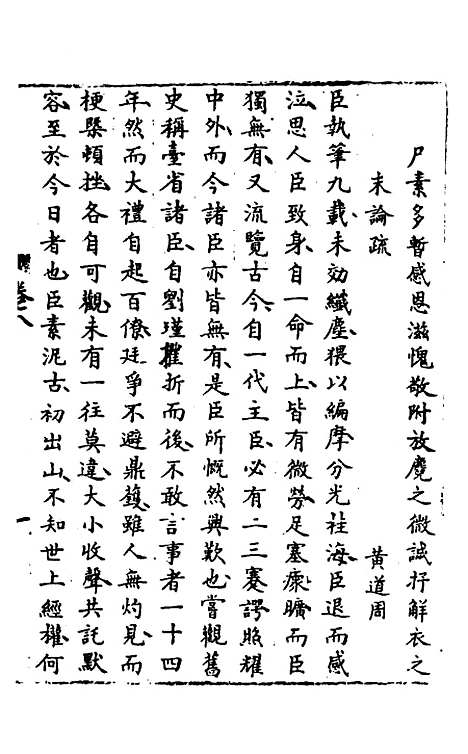 尸素多暫感恩滋愧敬附放麑之微誠抒解衣之
末論疏
黃道周
臣執筆九載未効纖塵猥以編摩分光袿海臣退而感
泣思人臣致身自一命而上皆有微勞足塞瘝曠而臣
獨無有又流覽古今自一代主臣必有一二三蹇諤照耀
中外而今諸臣亦皆無有是臣所慨然興歎也嘗觀舊
史稱臺省諸臣自劉瑾摧折而後不敢言事者一十四
年然而大禮自起百僚廷爭不避鼎鑊雖人無灼見而
梗槩頓挫各自可觀未有一往莫違大小收聲共託默
容至於今日者也臣素泥古初出山不知世上經權何
卷八
一